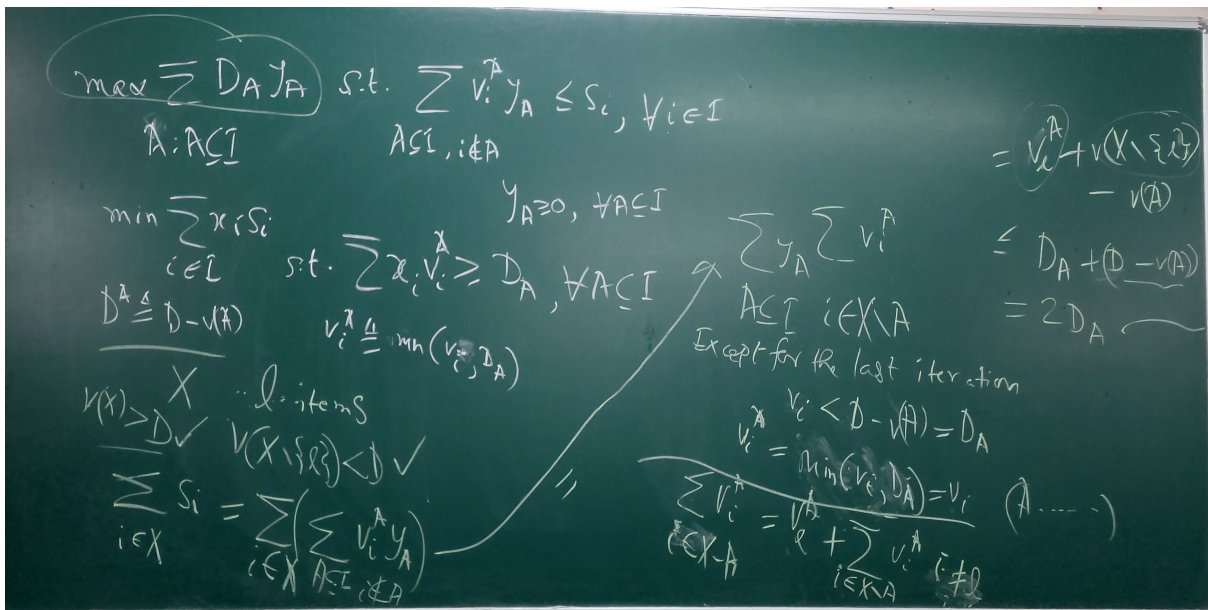 max ∑ D_A y_A s.t. ∑ v_i^A y_A ≤ S_i, ∀i∈I
A:A⊆I A⊆I, i∉A
y_A≥0, ∀A⊆I
min ∑ x_i S_i
i∈I s.t. ∑ x_i v_i^A ≥ D_A, ∀A⊆I
D^A ≜ D-v(A) v_i^A ≜ min(v_i, D_A)
X l-items
v(X)>D✓ v(X\{l})<D ✓
∑ S_i = ∑(∑ v_i^A y_A)
i∈X i∈X A⊆I i∉A
=
∑ y_A ∑ v_i^A
A⊆I i∈X\A
Except for the last iteration
v_i < D - v(A) = D_A
v_i^A = min(v_i, D_A) = v_i (A.....)
∑ v_i^A = v_l^A + ∑ v_i^A
i∈X-A i∈X\A i≠l
= v_l^A + v(X\{l})
- v(A)
≤ D_A + (D - v(A))
= 2D_A